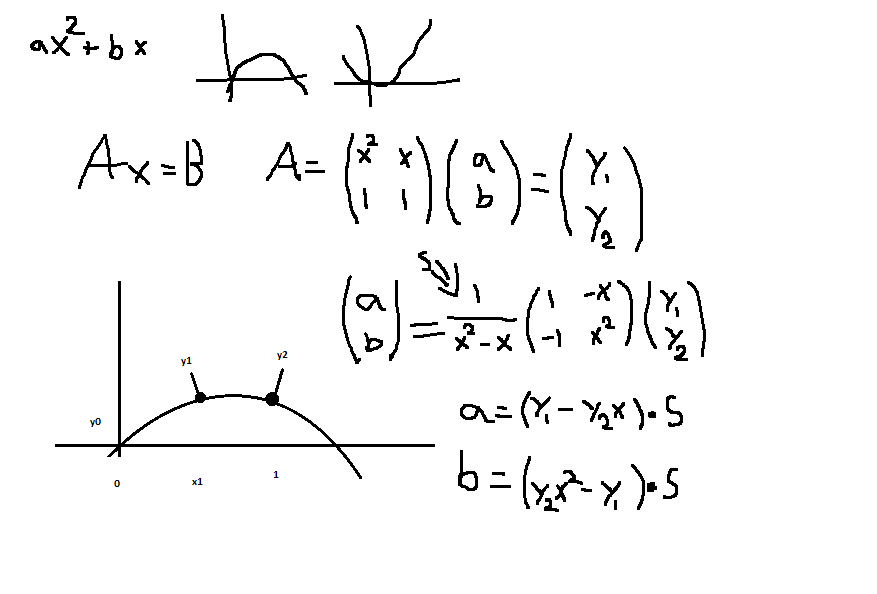 ax²+bx
Ax=B A= (x² x 1 1) (a b) = (y₁ y₂)
S
(a b) = 1/(x²-x) (1 -x -1 x²) (y₁ y₂)
y1 y2
a=(y₁-y₂x)·S
y0
b=(y₂x²-y₁)·S
0 x1 1